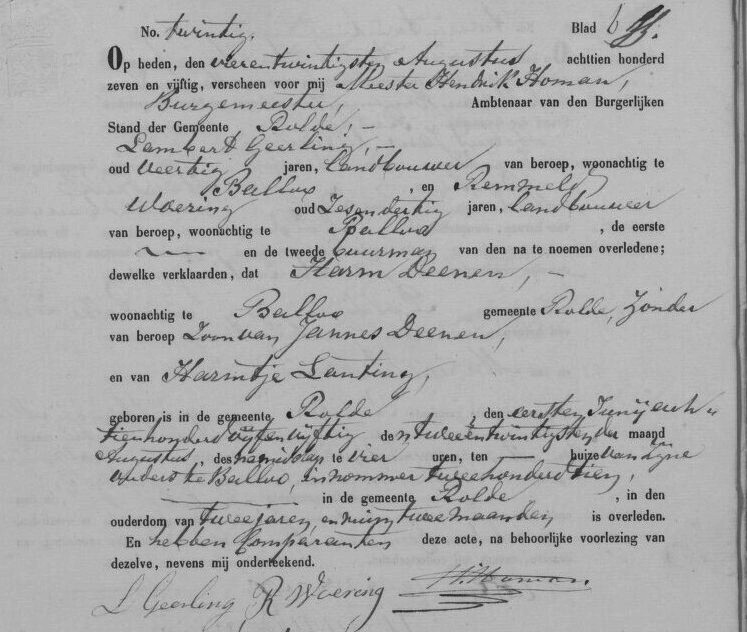 No. twintig. Blad 6
Op heden, den vierentwintigsten Augustus achttien honderd
zeven en vijftig, verscheen voor mij Meester Hendrik Homan,
Burgemeester, Ambtenaar van den Burgerlijken
Stand der Gemeente Rolde, —
Lambert Geerling, —
oud veertig jaren, landbouwer van beroep, woonachtig te
Balloo, en Remmelt
Woering oud Zesendertig jaren, landbouwer
van beroep, woonachtig te Balloo, de eerste
— en de tweede buurman van den na te noemen overledene;
dewelke verklaarden, dat Harm Deenen, —
woonachtig te Balloo gemeente Rolde, Zonder
van beroep Zoon van Jannes Deenen,
en van Harmtje Lanting,
geboren is in de gemeente Rolde, den eersten Junij ach„
tienhonderd vijfenvijftig den tweeentwintigsten der maand
Augustus, des namiddag te vier uren, ten — huize van zijne
ouders te Balloo, in nommer tweehonderd tien,
— in de gemeente Rolde, in den
ouderdom van twee jaren, en ruim twee maanden is overleden.
En hebben Comparanten deze acte, na behoorlijke voorlezing van
dezelve, nevens mij onderteekend.
L Geerling R Woering H. Homan.